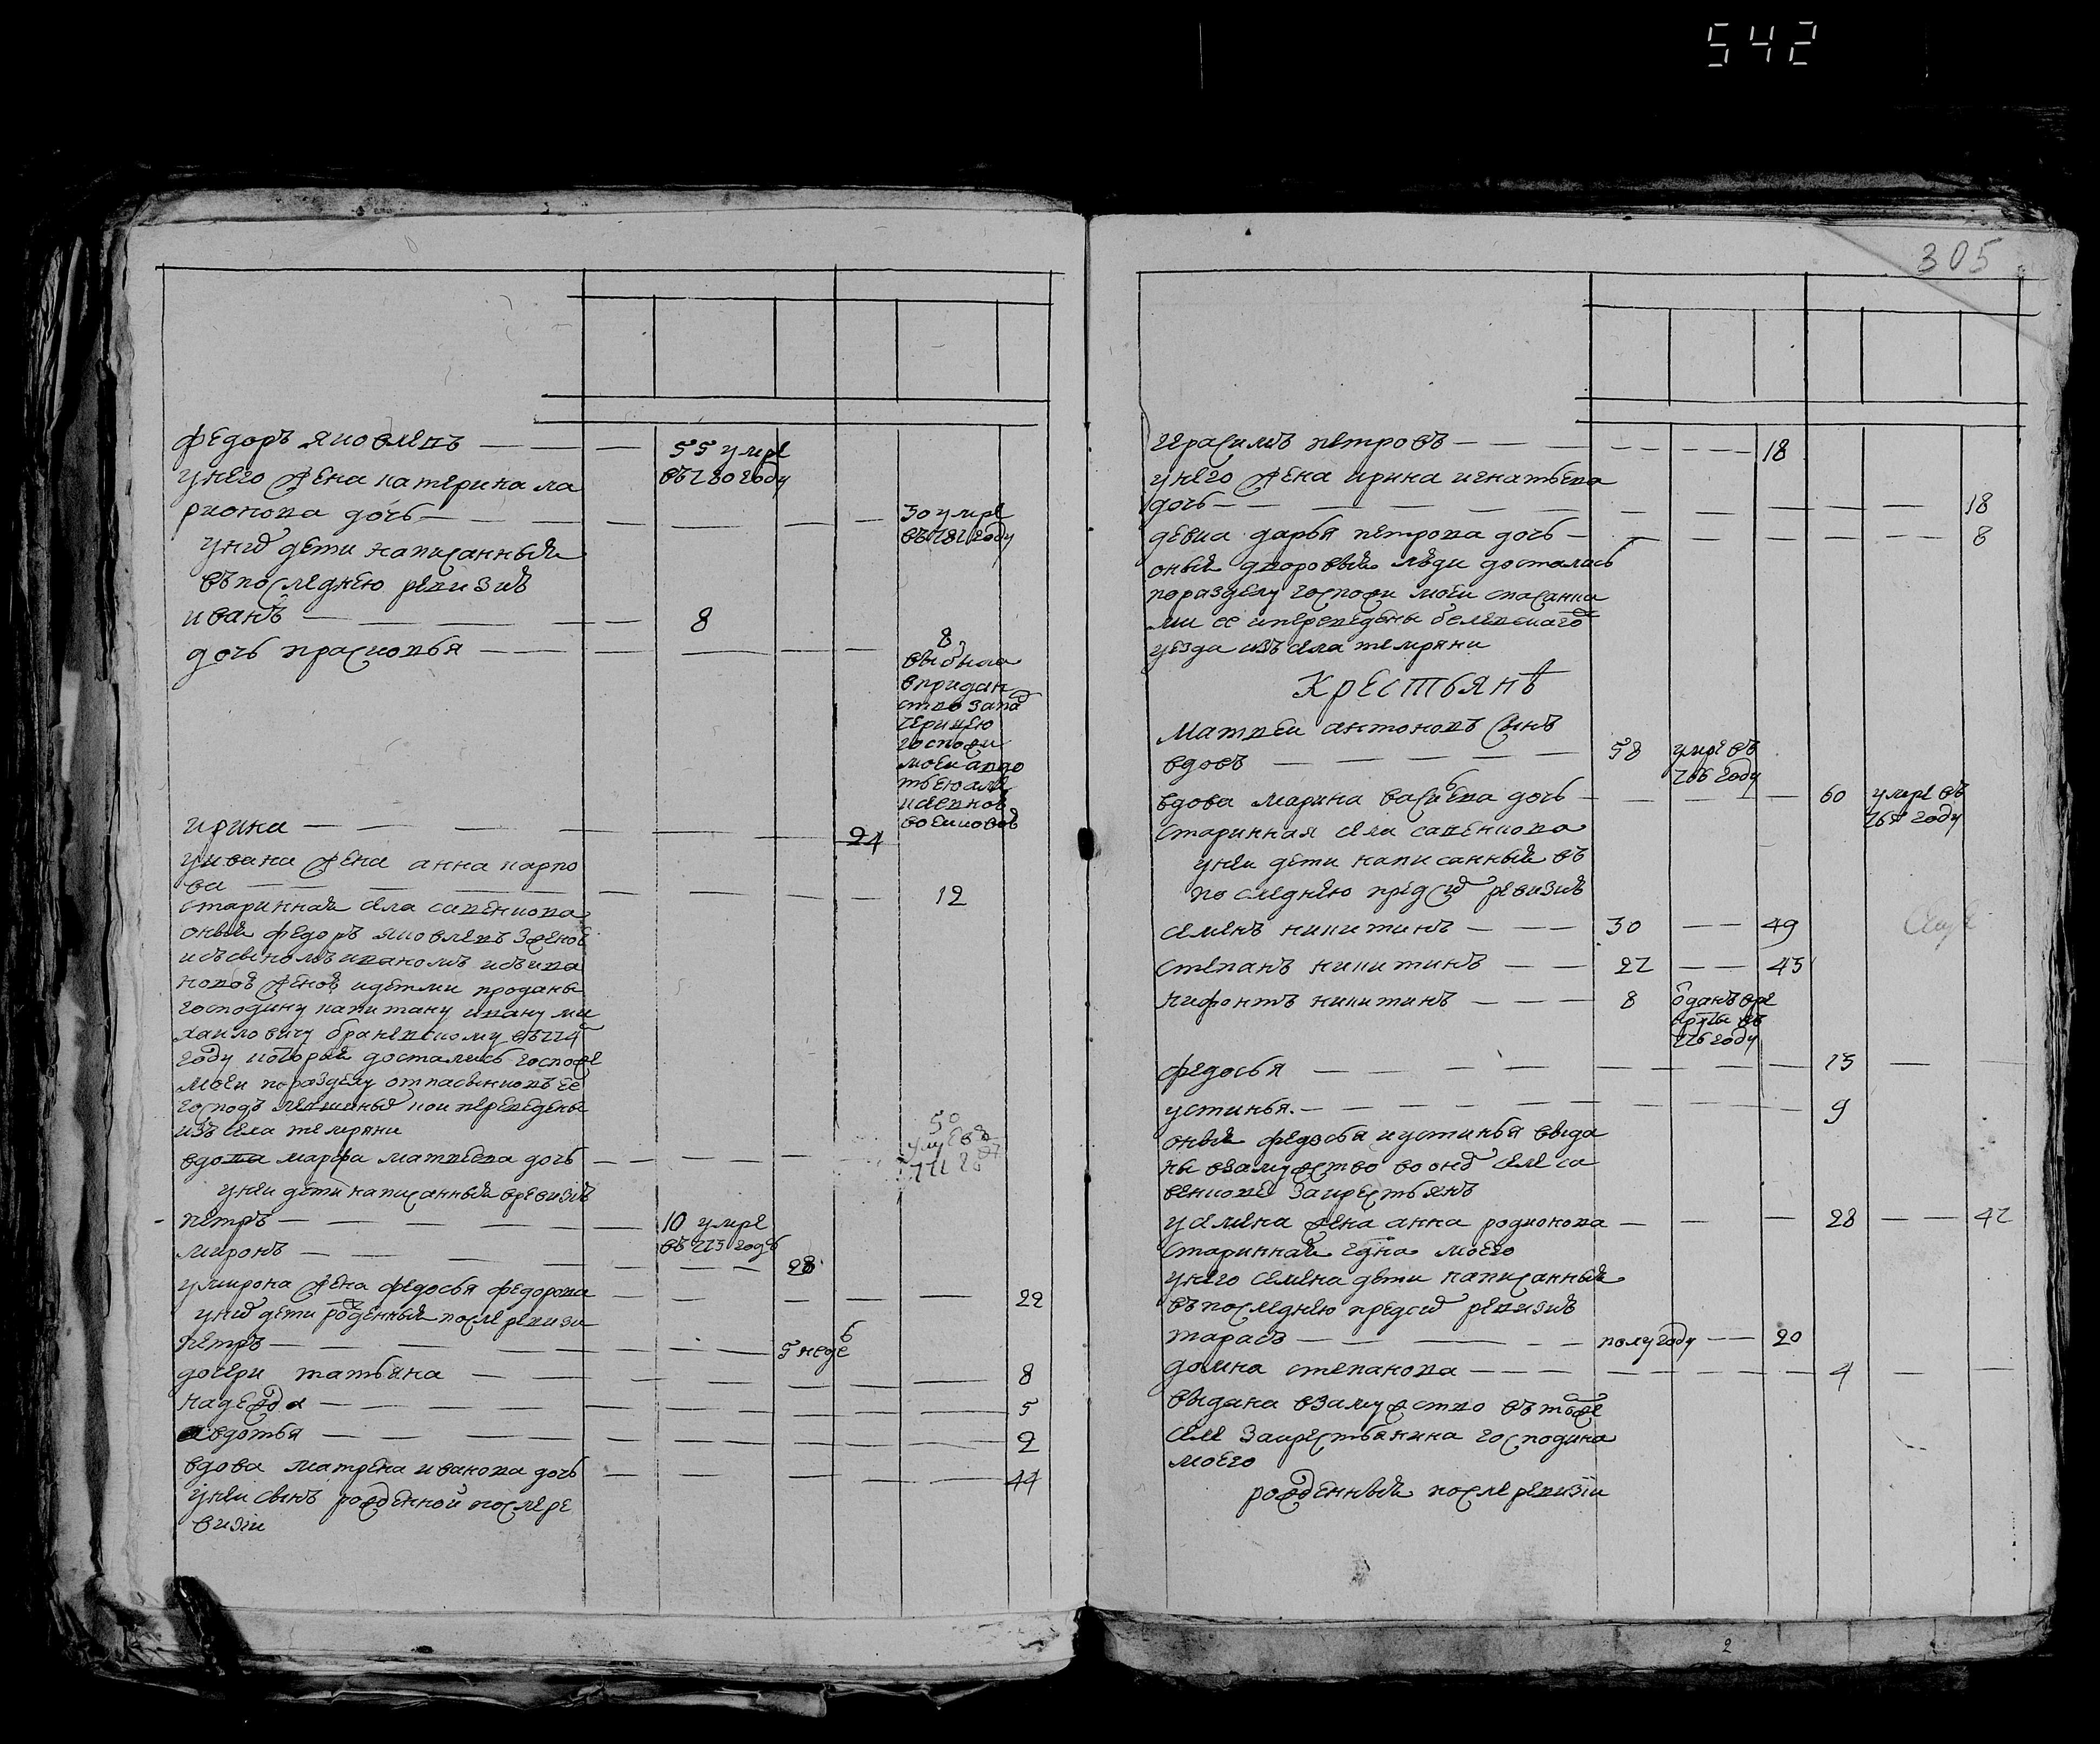 542
305
федоръ яковлевъ
55 умре
въ 780 году
унего жена катерина ла
рионова дочь
30 умре
въ 781 году
уних дети написанныя
въпоследнею ревизию
иванъ
8
дочь прасковья
8
выбыла
впридан
ство запа
госпожи
моеи авдо
ирина
24
уивана жена анна карпо
ва
12
стариннай села савенкова
оный федоръ яковлевъ зженою
исъсыномъ иваномъ исъива
новою женою идетми проданы
господину капитану ивану ми
хаиловичу браневскому въ 774
году которыя достались госпоже
моеи поразделу отпасынковъ ее
господъ
ипереведены
изъ села темряни
вдова марфа матвеева дочь
50
унеи дети написанныя вревизию
петръ
10 умре
въ 773 годъ
миронъ
28
умирона жена федосья федорова
22
уних дети рожденныя после ревизи
петръ
5 неде
дочери татьяна
8
надежда
5
авдотья
2
вдова матрена иванова дочь
44
унеи сынъ рожденной послере
визiи
герасимъ петровъ
18
унего жена ирина игнатьева
дочь
18
девка дарья петрова дочь
8
оныя дворовыя люди достались
поразделу госпожи моеи спасынка
ми ее ипереведены белевскаго
уезда изъ села темряни
Крестьянъ
Матвеи антоновъ сынъ
вдовъ
58
умре въ
766 году
вдова марина васильева дочь
60
умре въ
767 году
старинная села савенкова
унеи дети написанныя въ
последнею предсию ревизию
семенъ никитинъ
30
49
степанъ никитинъ
27
45
нифонтъ никитинъ
8
отданъ вре
круты въ
776 году
федосья
15
устинья
9
оныя федосья иустинья выда
ны взамужство во оном селе са
венкове закрестьянъ
усемена жена анна родионова
28
47
стариннай гдна моего
унего семена дети написанныя
въпоследнею предсию ревизию
тарасъ
полугоду
20
домна степанова
4
выдана взамужство въ томже
селе закрестьянина господина
моего
рожденныя после ревизiи
2